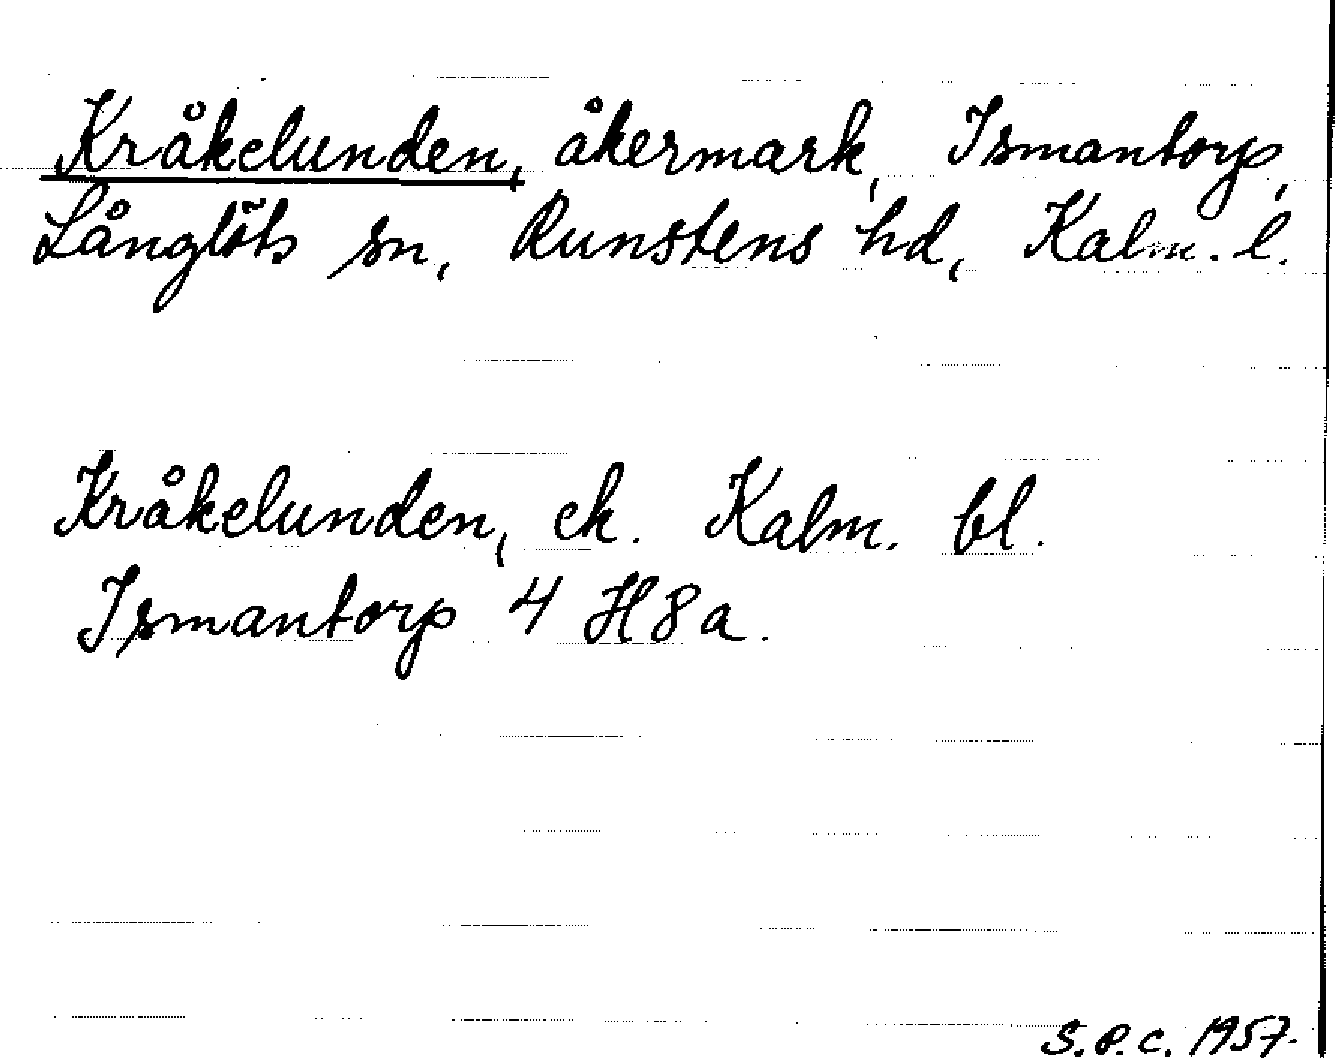 Kråkelunden, åkermark, Ismantorp,
Långlöts sn, Runstens hd, Kalm. l.
Kråkelunden, ek. Kalm. bl.
Ismantorp 4 H 8 a.
S.P.C. 1957.